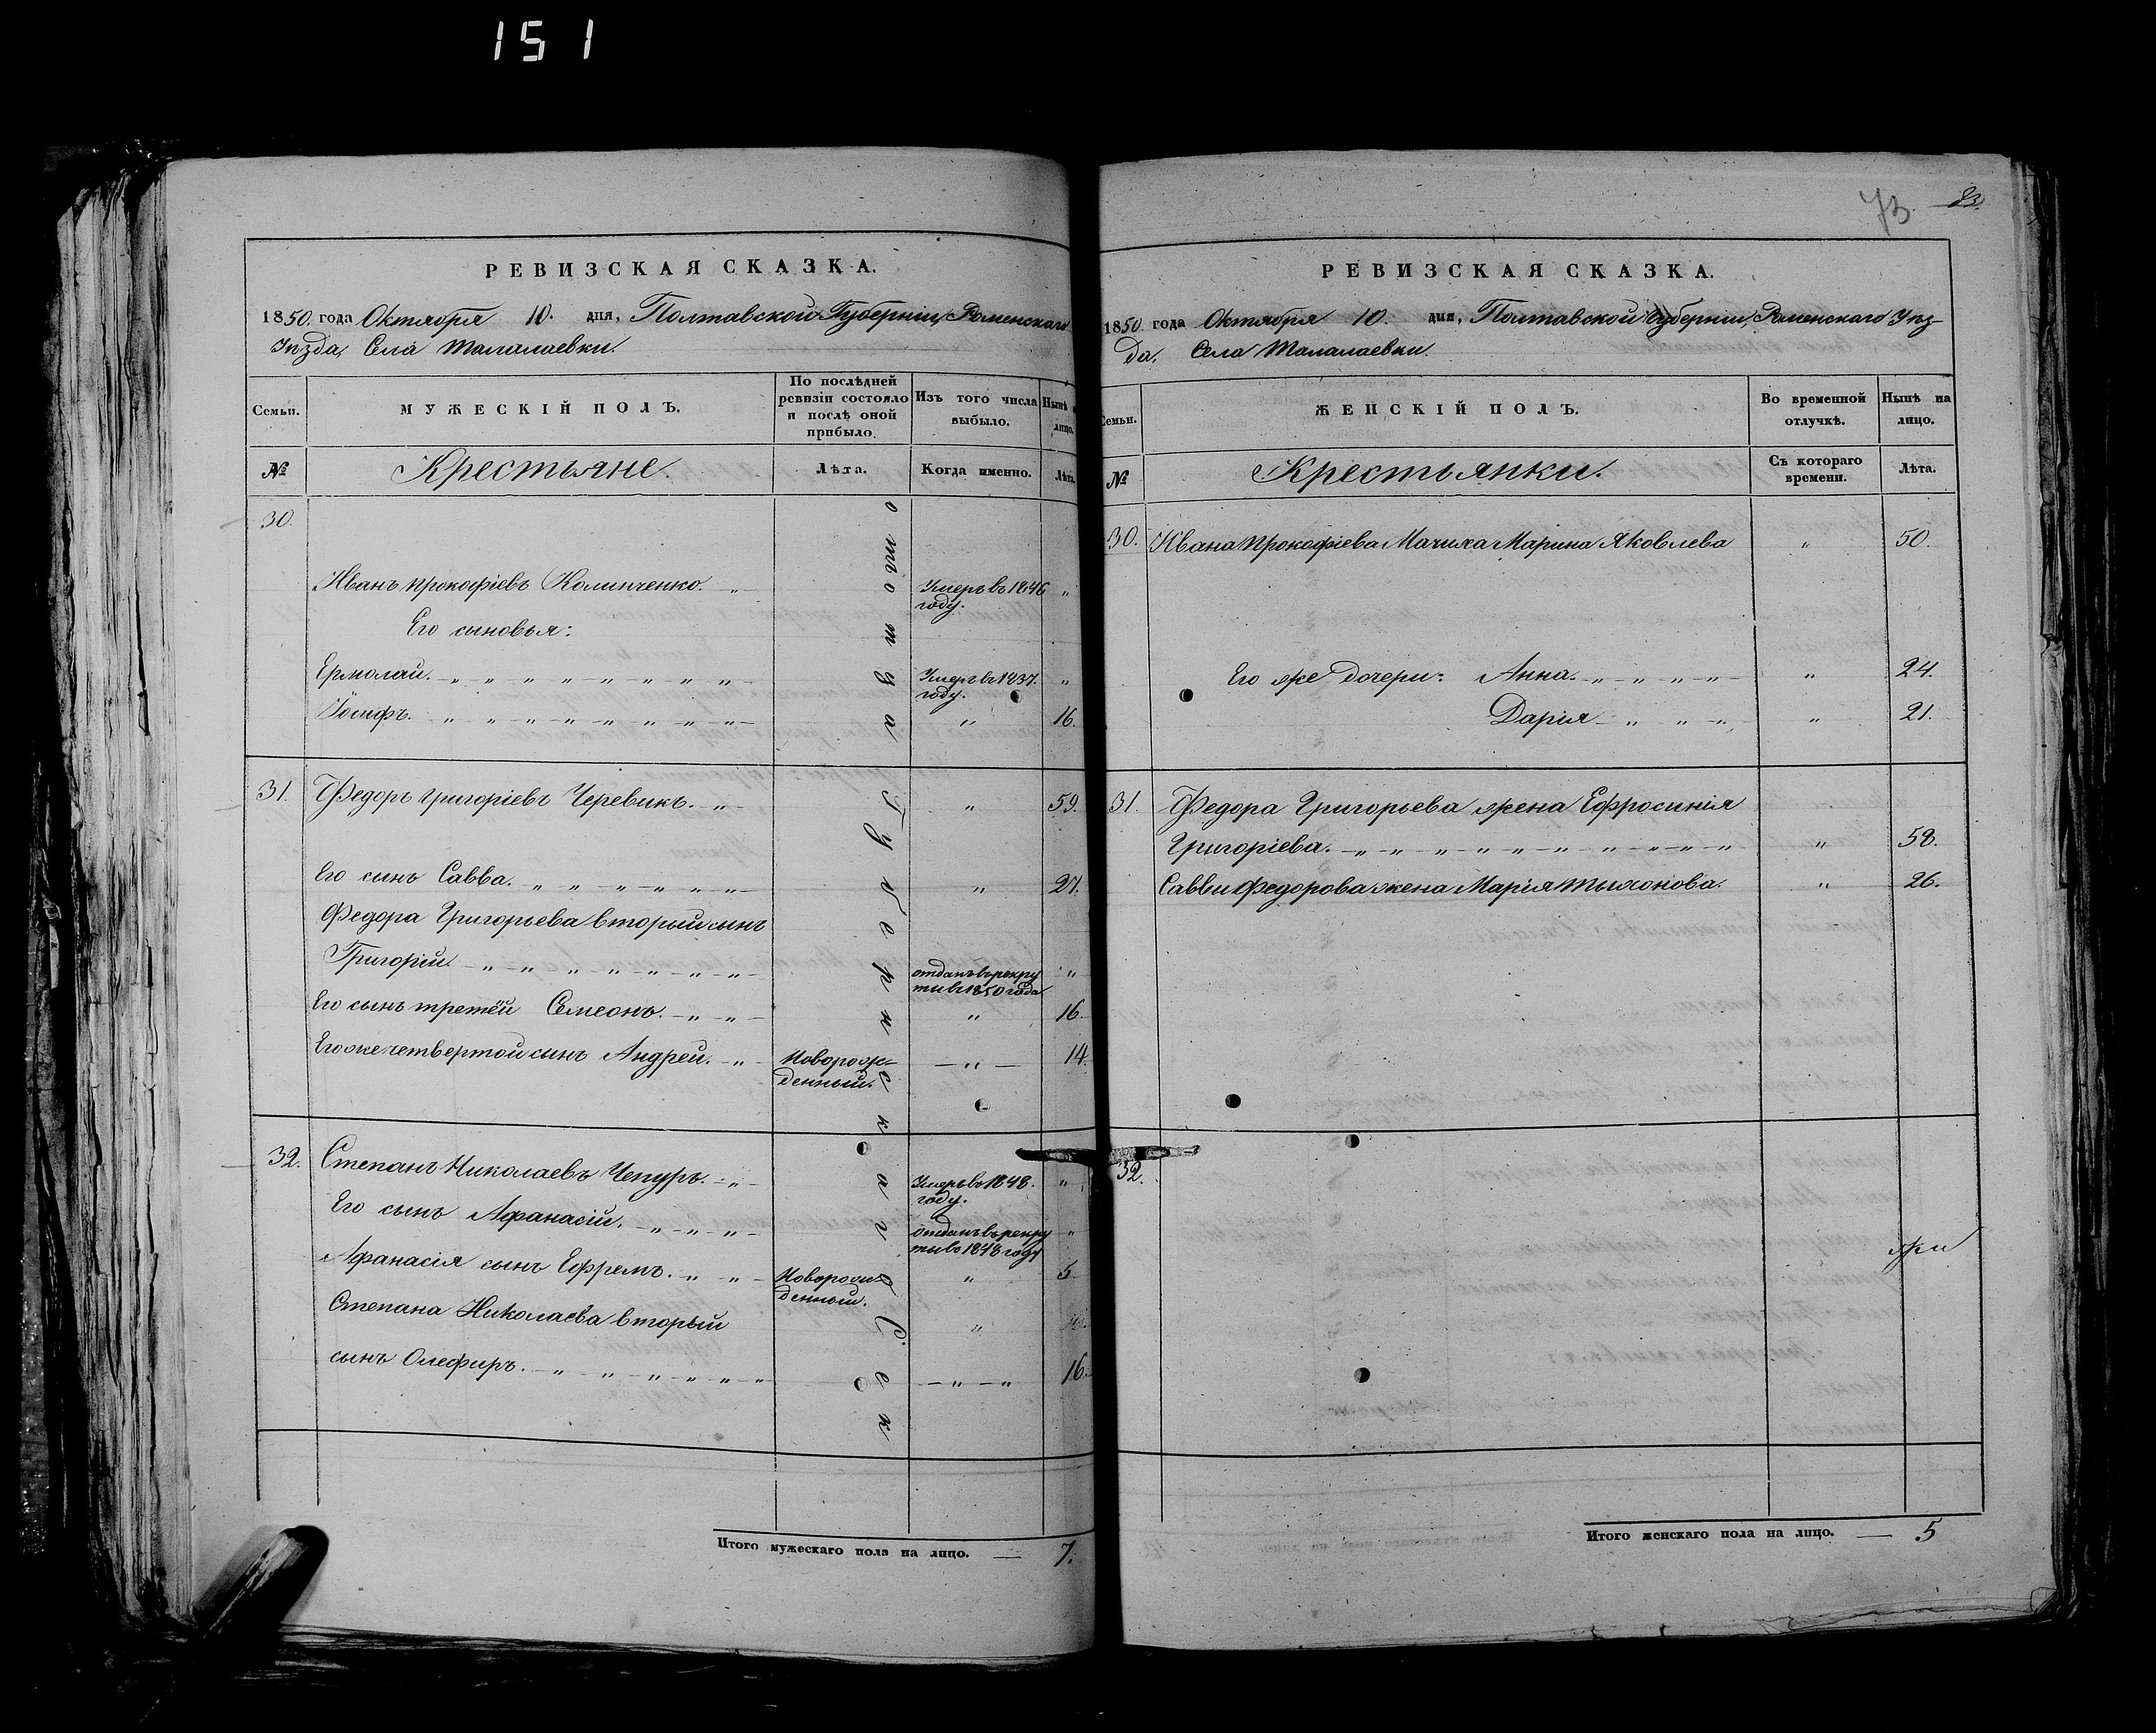 151
РЕВИЗСКАЯ СКАЗКА.
1850 года Октября 10. дня, Полтавской Губерніи, Роменскаго
Уѣзда, Села Талалаевки.
Семьи.
МУЖЕСКІЙ ПОЛЪ.
По послѣдней ревизіи состояло и послѣ оной прибыло.
Изъ того числа выбыло.
Нынѣ на лицо.
№
Крестьяне.
Лѣта.
Когда именно.
Лѣта.
30.
Иванъ Прокофіевъ " Умеръ въ 1846 году. "
Его сыновья:
Ермолай. " Умеръ въ 1837. году. "
Іосифъ. " " 16.
31. Федоръ Григоріевъ Черевикъ. " " 59.
Его сынъ Савва. " " 27.
Федора Григорьева вторый сынъ
Григорій. " отданъ въ рекруты въ 1850 года "
Его сынъ третій Семеонъ. " " 16.
Его же четвертой сынъ Андрей. " Новорожденный. " 14.
32. Степанъ Николаевъ Чепуръ. " Умеръ въ 1848. году. "
Его сынъ Афанасій. " отданъ въ рекруты въ 1848 году "
Афанасія сынъ Ефремъ. " Новорожденный. " 5.
Степана Николаева вторый "
сынъ Олефиръ. " " 16.
Итого мужескаго пола на лицо. — 7.
73. 83.
РЕВИЗСКАЯ СКАЗКА.
1850 года Октября 10. дня, Полтавской Губерніи, Роменскаго Уѣз-
да, Села Талалаевки.
Семьи.
ЖЕНСКІЙ ПОЛЪ.
Во временной отлучкѣ.
Нынѣ на лицо.
№
Крестьянки.
Съ котораго времени.
Лѣта.
30. Ивана Прокофіева Мачиха Марина Яковлева " 50.
Его же дочери: Анна. " " 24.
Дарія " " 21.
31. Федора Григорьева жена Ефросинія
Григоріева. " " 58.
Саввы Федорова жена Марія Тихонова. " 26.
32.
Итого женскаго пола на лицо. — 5